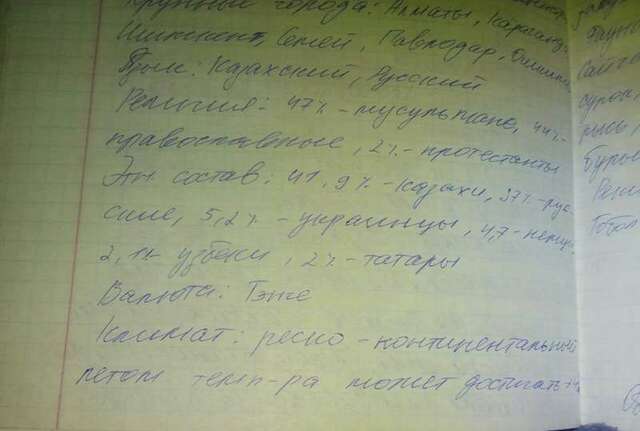 Крупные города: Алматы, Караганд
Шимкент, Семей, Павлодар,
Язык: Казахский, Русский
Религия: 47% - мусульмане, 44% -
православные, 2% - протестанты
Эт. состав: 41,9% - казахи, 37% - рус-
ские, 5,2% - украинцы, 4,7 - немц
2,1% узбеки, 2% - татары
Валюта: Тэнге
Климат: реско - континентальный
летом темп-ра может достигать
Сайга
сурок,
рысь,
Буры
Тобол